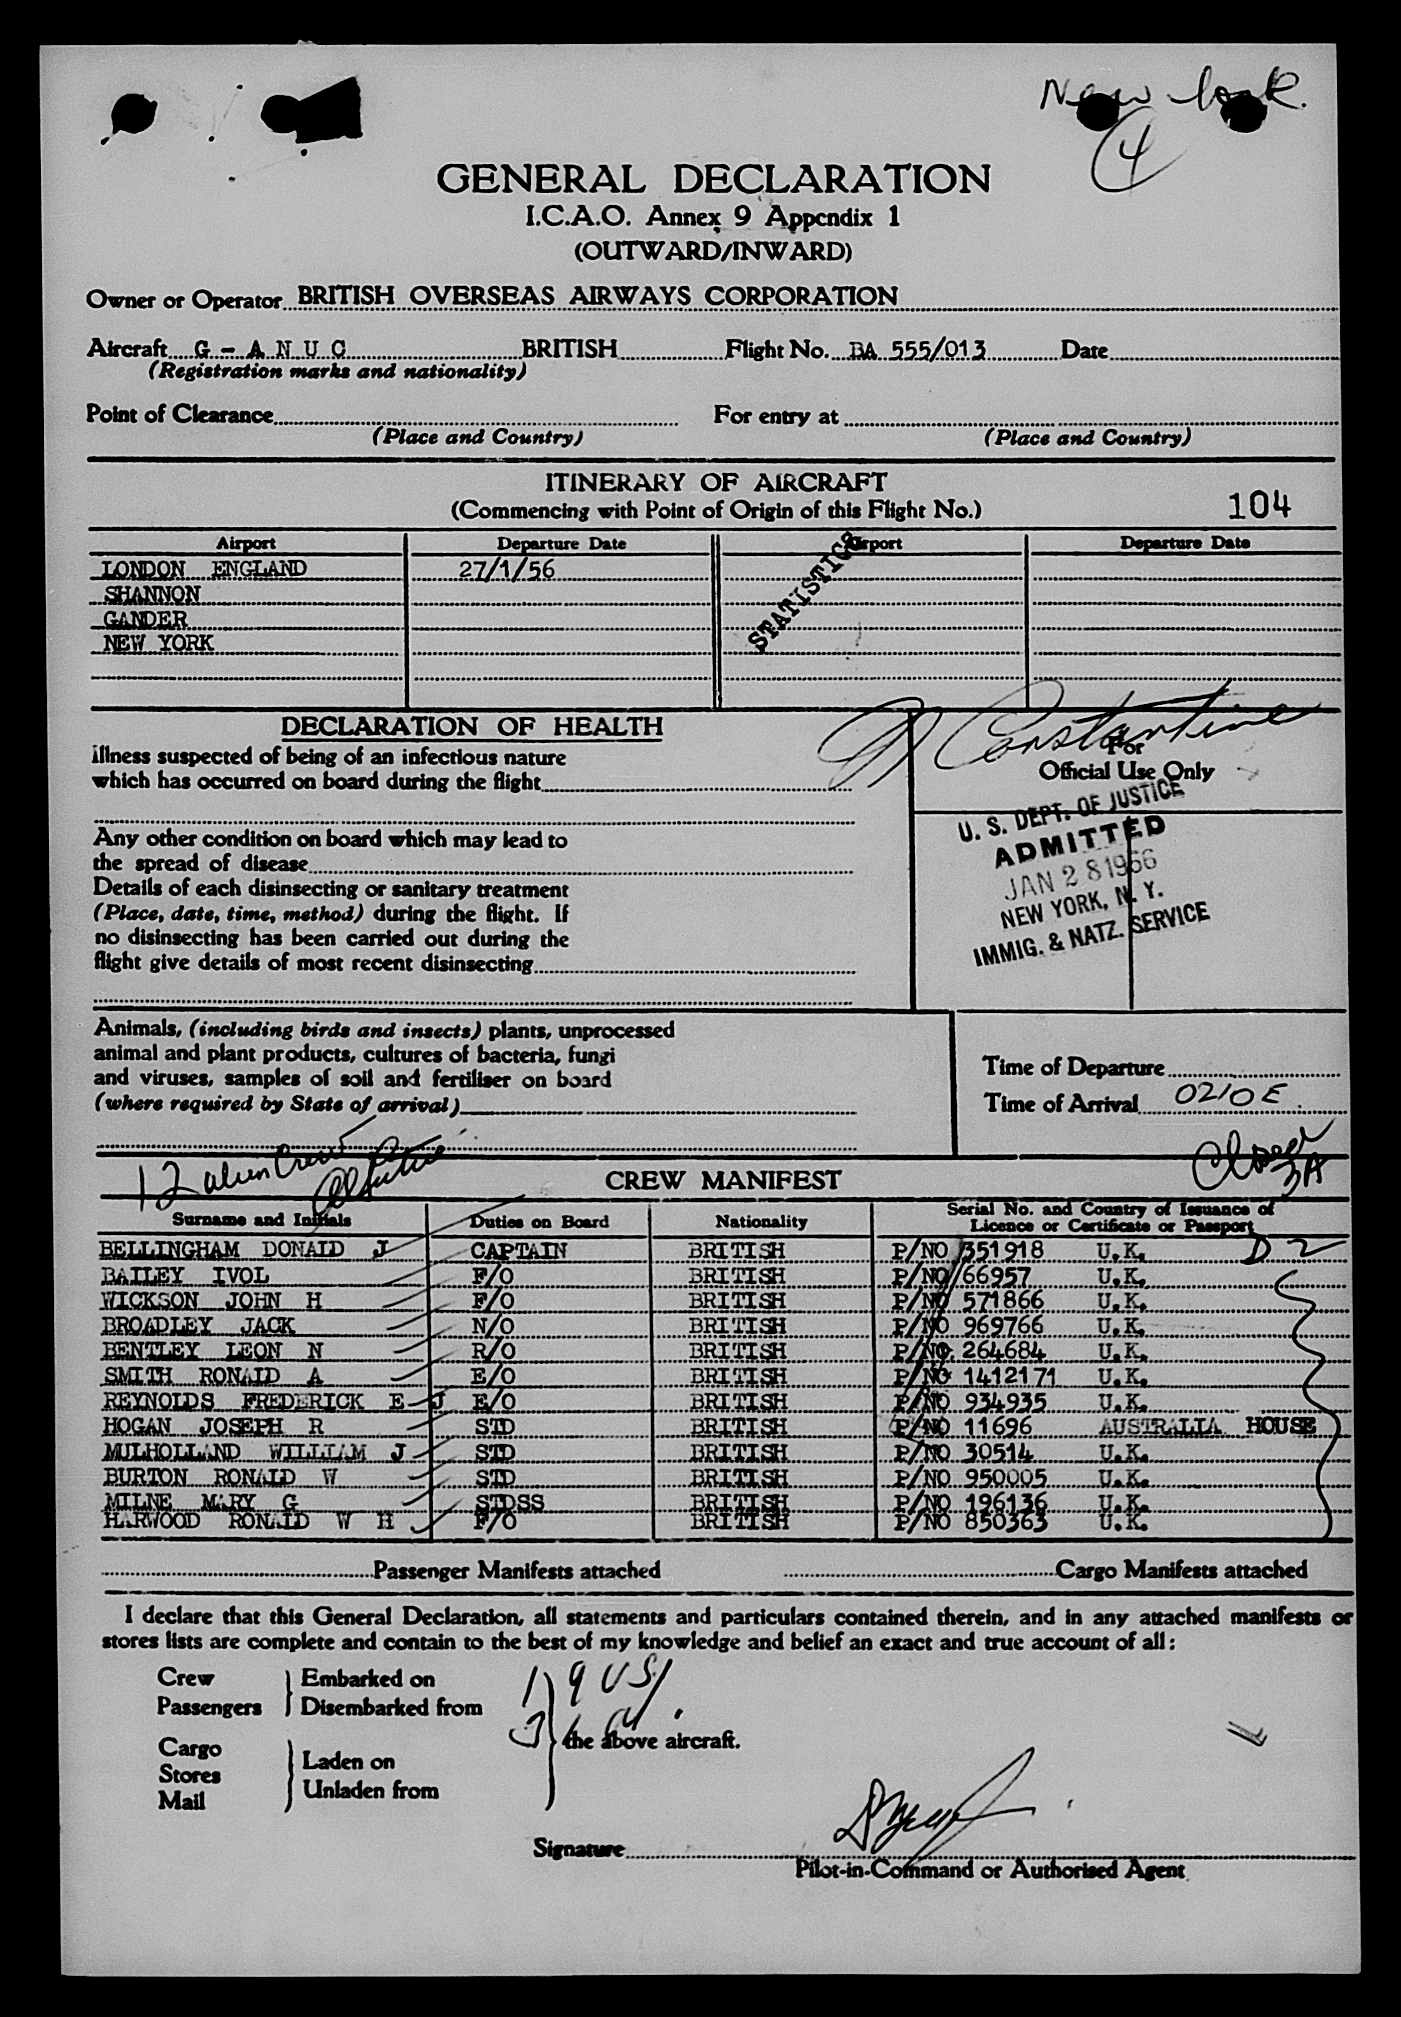 New York.
4
GENERAL DECLARATION
I.C.A.O. Annex 9 Appendix 1
(OUTWARD/INWARD)
Owner or Operator BRITISH OVERSEAS AIRWAYS CORPORATION
Aircraft G - A N U C BRITISH Flight No. BA 555/013 Date
(Registration marks and nationality)
Point of Clearance For entry at
(Place and Country) (Place and Country)
ITINERARY OF AIRCRAFT
(Commencing with Point of Origin of this Flight No.) 104
Airport Departure Date Airport Departure Date
LONDON ENGLAND 27/1/56
SHANNON
GANDER
NEW YORK
STATISTICS
DECLARATION OF HEALTH
Constantine
illness suspected of being of an infectious nature
which has occurred on board during the flight
For
Official Use Only
Any other condition on board which may lead to
the spread of disease
Details of each disinsecting or sanitary treatment
(Place, date, time, method) during the flight. If
no disinsecting has been carried out during the
flight give details of most recent disinsecting
U. S. DEPT. OF JUSTICE
ADMITTED
JAN 28 1956
NEW YORK, N. Y.
IMMIG. & NATZ. SERVICE
Animals, (including birds and insects) plants, unprocessed
animal and plant products, cultures of bacteria, fungi
and viruses, samples of soil and fertiliser on board
(where required by State of arrival)
Time of Departure
Time of Arrival 0210E
12 alien Crew
CREW MANIFEST
Closed
3A
Surname and Initials Duties on Board Nationality Serial No. and Country of Issuance of
Licence or Certificate or Passport
BELLINGHAM DONALD J CAPTAIN BRITISH P/NO 351918 U.K. D 2
BAILEY IVOL F/O BRITISH P/NO 66957 U.K.
WICKSON JOHN H F/O BRITISH P/NO 571866 U.K.
BROADLEY JACK N/O BRITISH P/NO 969766 U.K.
BENTLEY LEON N R/O BRITISH P/NO. 264684 U.K.
SMITH RONALD A E/O BRITISH P/NO 1412171 U.K.
REYNOLDS FREDERICK E J E/O BRITISH P/NO 934935 U.K.
HOGAN JOSEPH R STD BRITISH P/NO 11696 AUSTRALIA HOUSE
MULHOLLAND WILLIAM J STD BRITISH P/NO 30514 U.K.
BURTON RONALD W STD BRITISH P/NO 950005 U.K.
MILNE MARY G STDSS BRITISH P/NO 196136 U.K.
HARWOOD RONALD W H F/O BRITISH P/NO 850363 U.K.
Passenger Manifests attached Cargo Manifests attached
I declare that this General Declaration, all statements and particulars contained therein, and in any attached manifests or
stores lists are complete and contain to the best of my knowledge and belief an exact and true account of all:
Crew Embarked on
Passengers Disembarked from
19 US
the above aircraft.
Cargo
Stores
Mail
Laden on
Unladen from
Signature
Pilot-in-Command or Authorised Agent